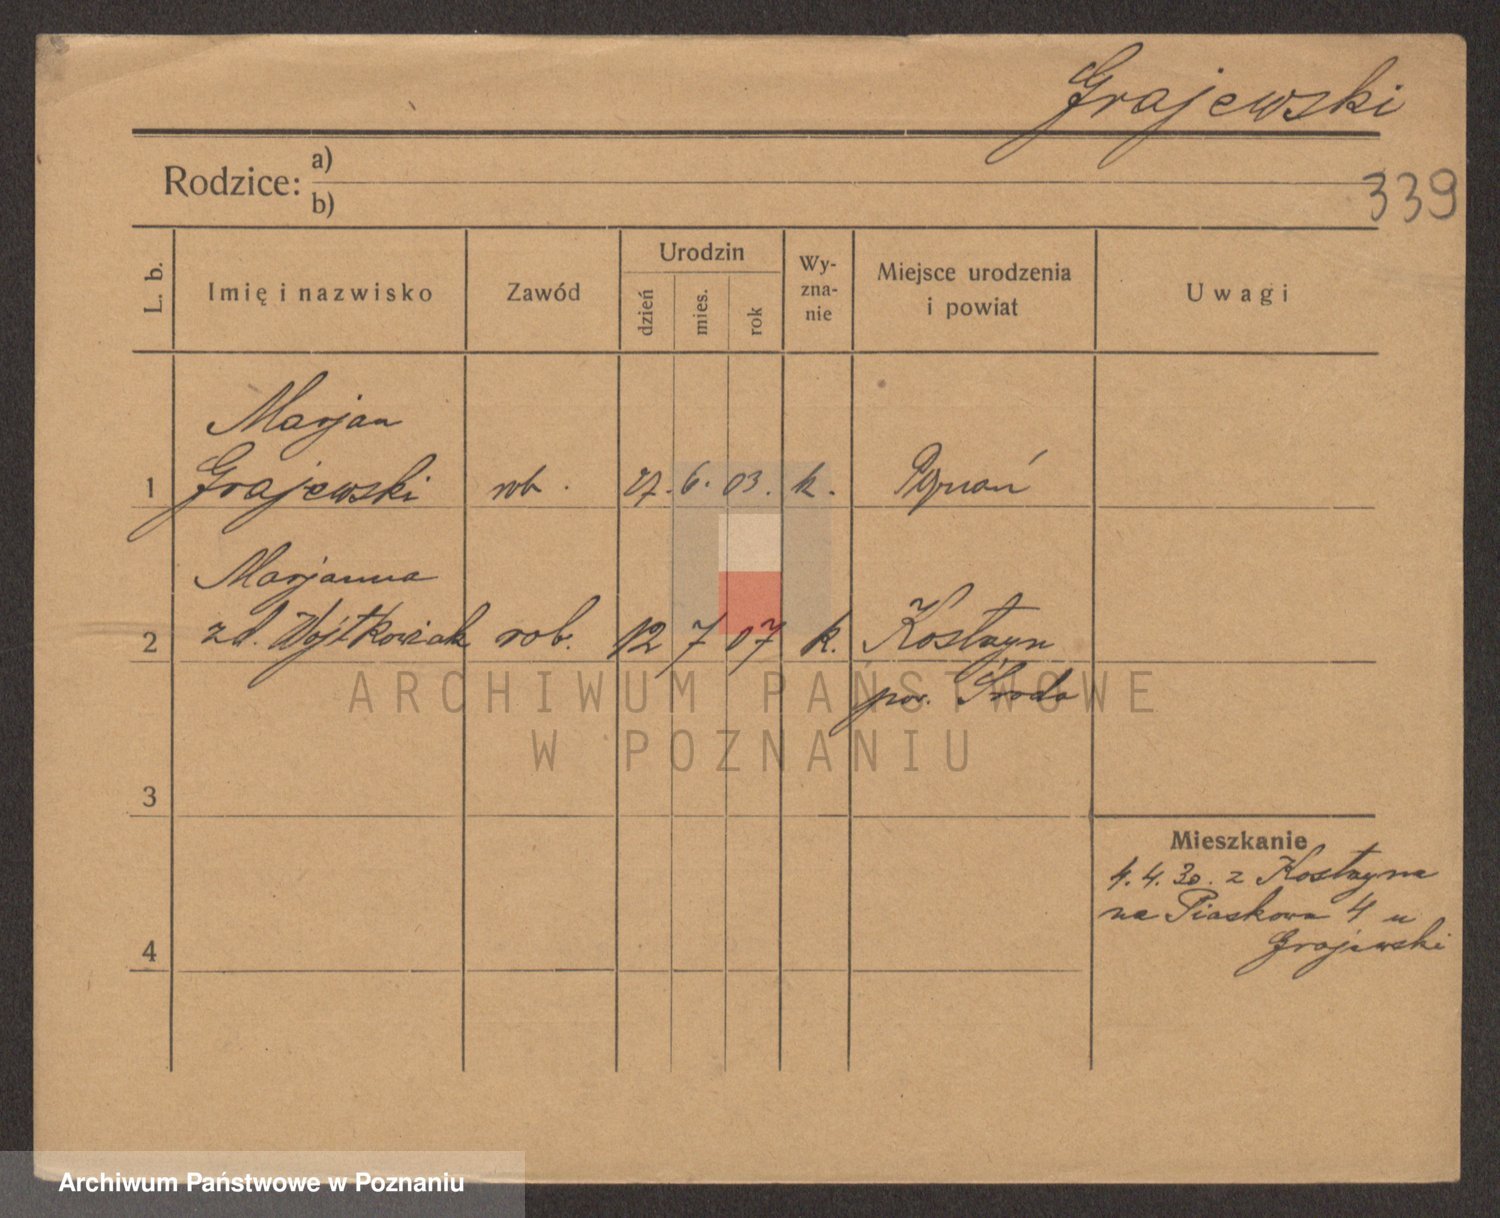 Grajewski
Rodzice: a)
b)
339
L. b.
Imię i nazwisko
Zawód
Urodzin
dzień
mies.
rok
Wy-
zna-
nie
Miejsce urodzenia
i powiat
Uwagi
Marjan
1 Grajewski rob. 27. 6. 03. k. Poznań
Marjanna
2 zd. Wojtkowiak rob. 12 7 07 k. Kostrzyn
pow. Środa
ARCHIWUM PAŃSTWOWE
W POZNANIU
3
Mieszkanie
4.4.30. z Kostrzyna
na Piaskowa 4 u
Grajewski
4
Archiwum Państwowe w Poznaniu